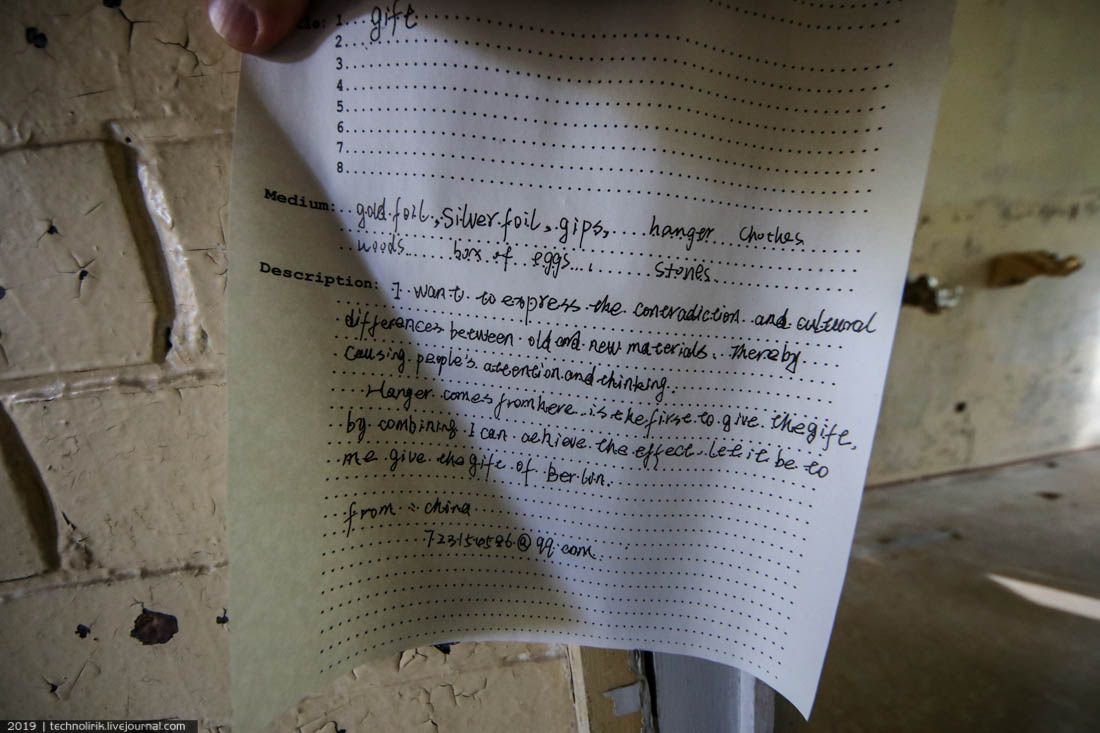 1. gift
2.
3.
4.
5.
6.
7.
8.
Medium: gold foil, Silver foil, gips, hanger chothes
woods box of eggs, stones
Description: I want to express the contradiction and cultural
differences between old and new materials, thereby
causing people's attention and thinking.
Hanger comes from here is the first to give the gift,
by combining I can achieve the effect let it be to
me give the gift of Berlin.
from : china
@qq.com
2019 | technolirik.livejournal.com